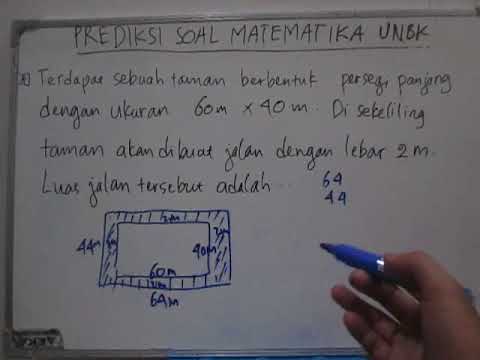 PREDIKSI SOAL MATEMATIKA UNBK
Terdapat sebuah taman berbentuk persegi panjang
dengan ukuran 60m x 40 m. Di sekeliling
taman akan dibuat jalan dengan lebar 2 m.
Luas jalan tersebut adalah...
64
44
2m
44m
2m
40m
60m
64m